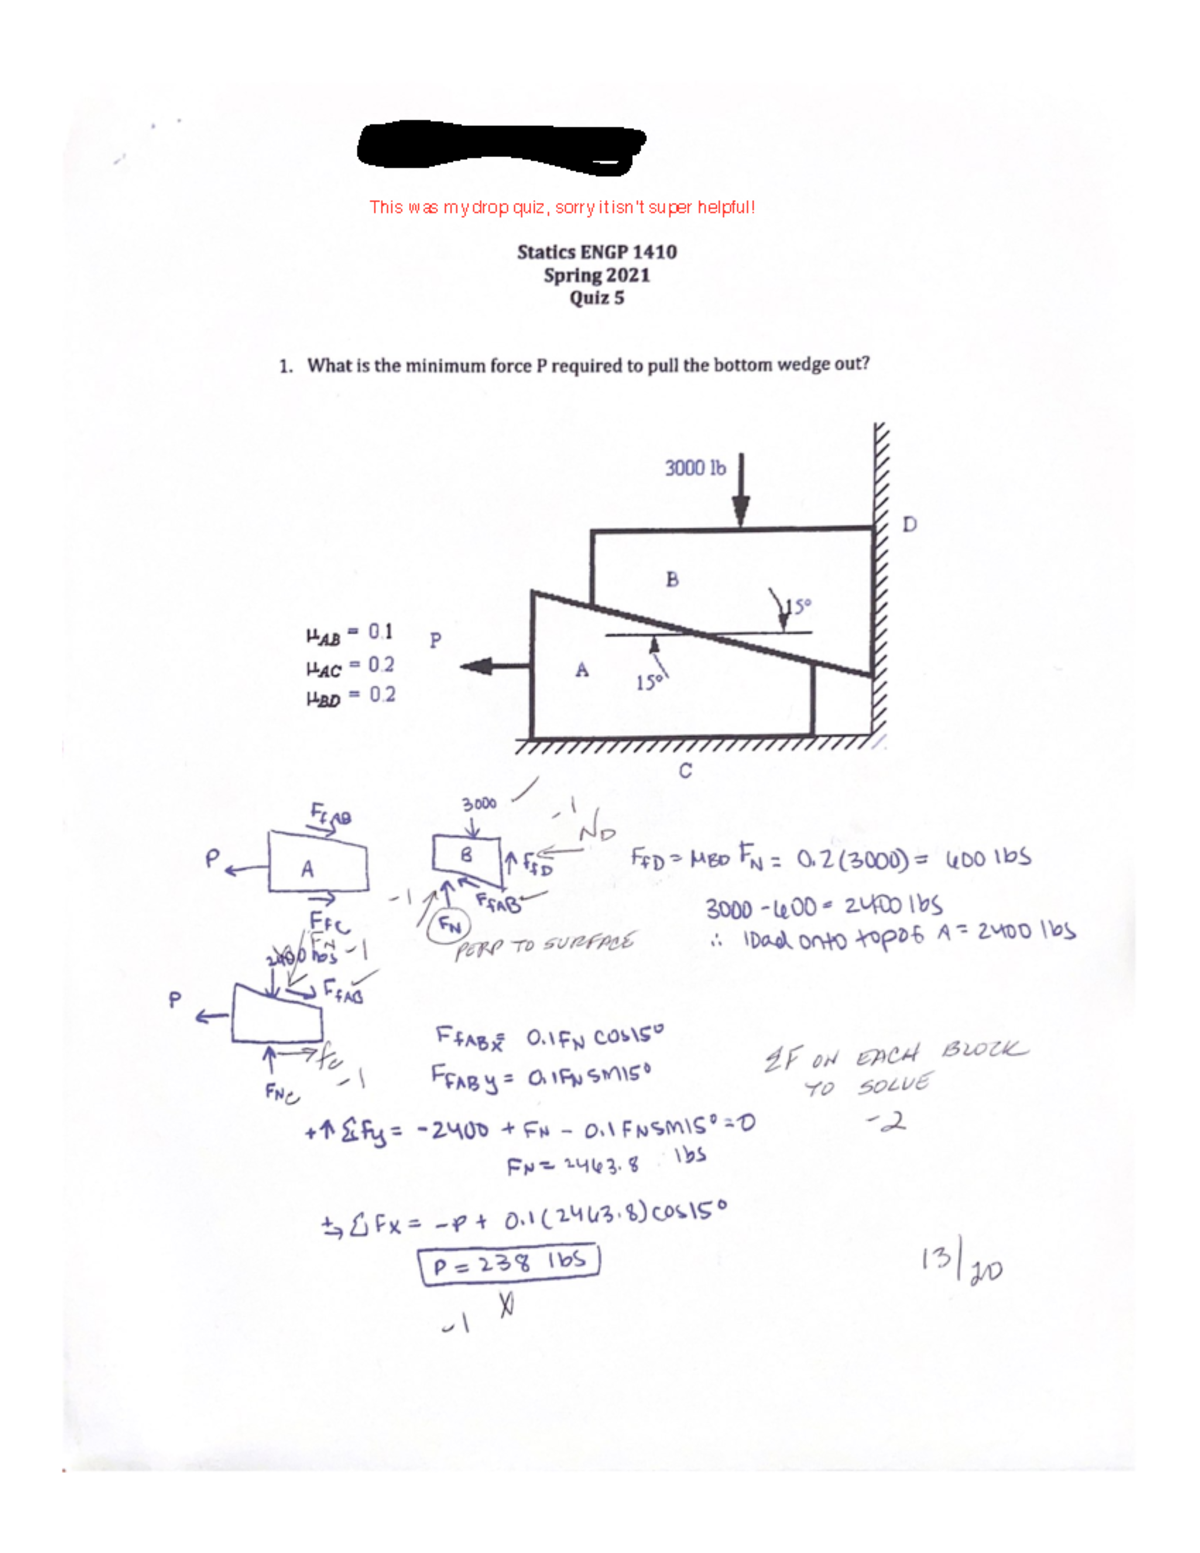 This was my drop quiz, sorry it isn't super helpful!
Statics ENGP 1410
Spring 2021
Quiz 5
1. What is the minimum force P required to pull the bottom wedge out?
3000 lb
D
B
15°
μAB = 0.1
P
μAC = 0.2
A
15°
μBD = 0.2
C
FfAB
P
A
FfC
3000
-1
ND
B
FfD
FfAB
-1
FN
PERP TO SURFACE
FfD = μBD FN = 0.2(3000) = 600 lbs
3000 - 600 = 2400 lbs
∴ load onto top of A = 2400 lbs
FN -1
2400 lbs
P
FfAB
fc
-1
FNC
FfABx = 0.1FN cos15°
FfABy = 0.1FN sin15°
ΣF ON EACH BLOCK
TO SOLVE
-2
+↑ ΣFy = -2400 + FN - 0.1FN sin15° = 0
FN = 2463.8 lbs
+→ ΣFx = -P + 0.1(2463.8)cos15°
P = 238 lbs
-1 X
13/20